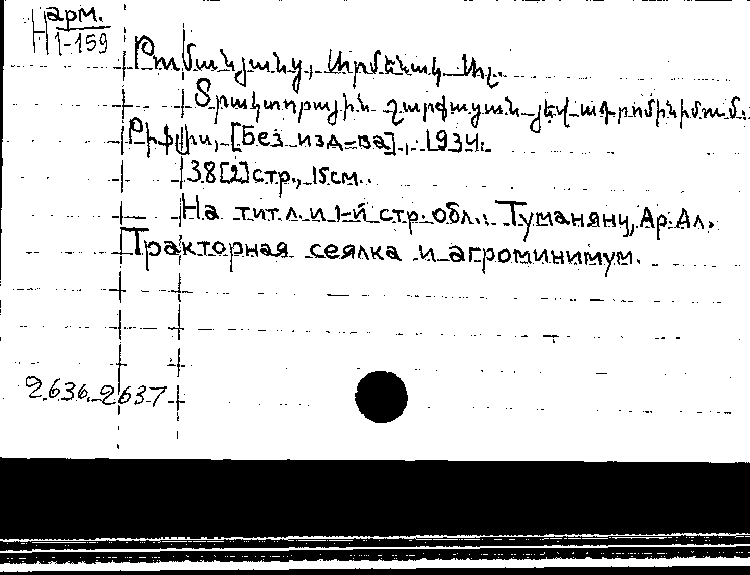 Н арм.
1-159
Թումանյանց, Արմենակ Ալ.
Տրակտորային շարքացան յեվ ագրոմինիմում.
Թիֆլիս, [Без изд-ва], 1934.
38[2]стр., 15см.
На тит.л. и 1-й стр. обл.: Туманянц, Ар. Ал.
Тракторная сеялка и агроминимум.
2636-2637